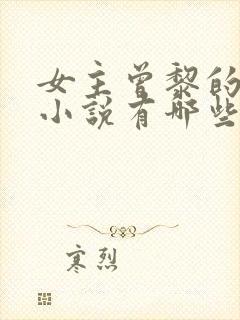 女主曾黎的
小说有哪些
寒烈